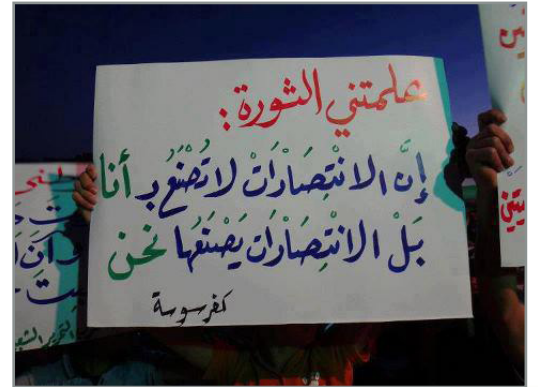 علمتني الثورة:
إنَّ الانْتِصَارَاتْ لا تُصْنَعُ بـ أنا
بَلْ الانْتِصَارَات يَصْنَعُها نحن
كفرسوسة